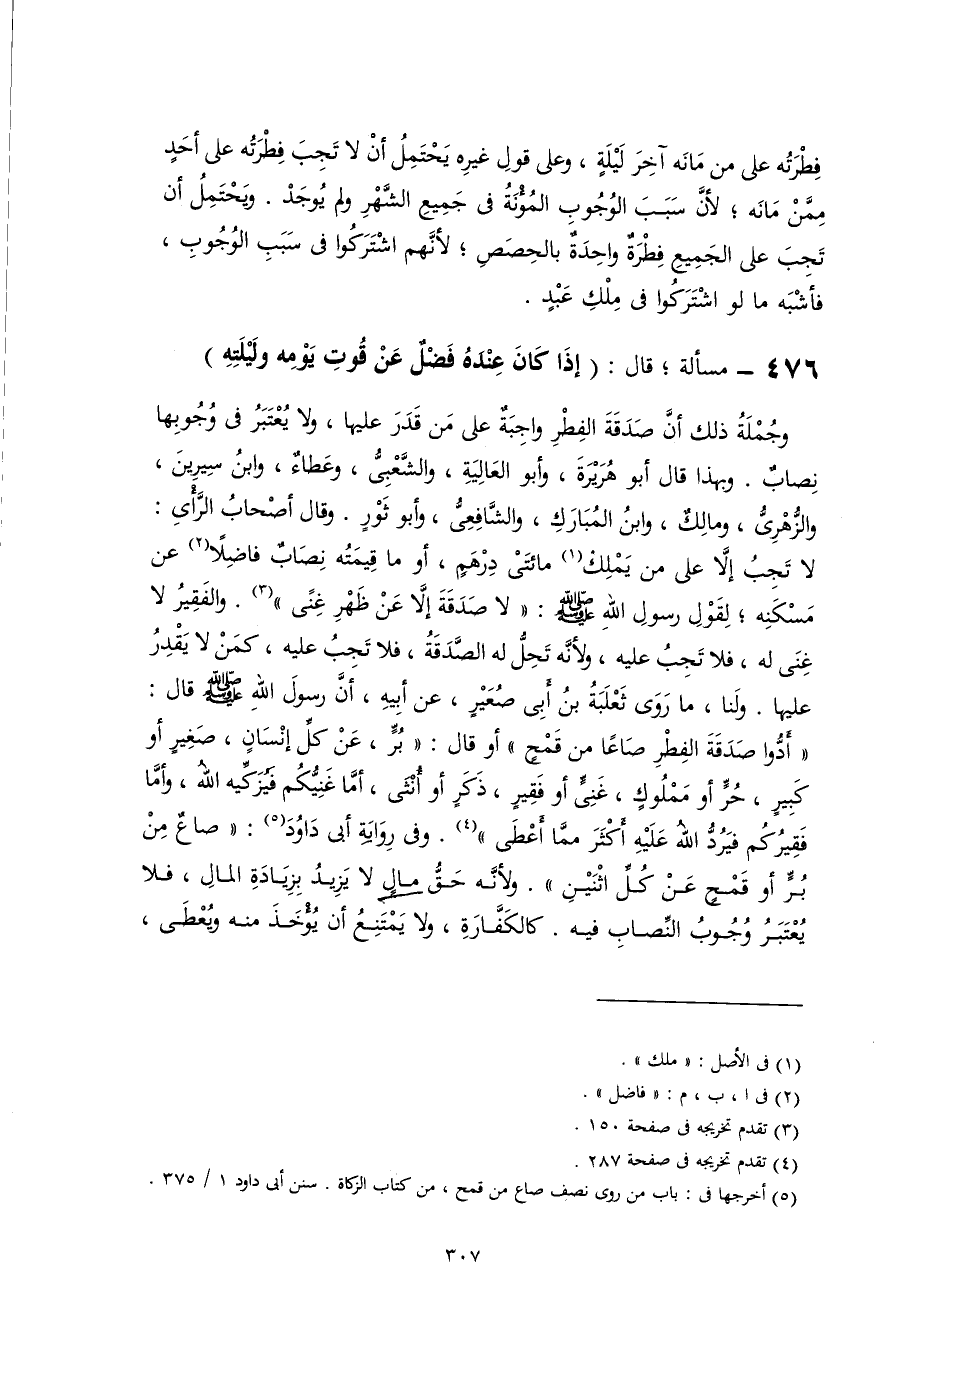 فِطْرَتُه على من مَانَه آخِرَ لَيْلَةٍ ، وعلى قولِ غيرِه يَحْتَمِلُ أنْ لا تَجِبَ فِطْرَتُه على أحَدٍ
مِمَّنْ مَانَه ؛ لأنَّ سَبَبَ الوُجُوبِ المُؤْنَةُ فى جَمِيعِ الشَّهْرِ ولم يُوجَدْ . ويَحْتَمِلُ أن
تَجِبَ على الجَمِيعِ فِطْرَةٌ واحِدَةٌ بالحِصَصِ ؛ لأنَّهم اشْتَرَكُوا فى سَبَبِ الوُجُوبِ ،
فأشْبَه ما لو اشْتَرَكُوا فى مِلْكِ عَبْدٍ .
٤٧٦ – مسألة ؛ قال : ( إذَا كَانَ عِنْدَهُ فَضْلٌ عَنْ قُوتِ يَوْمِه ولَيْلَتِهِ )
وجُمْلَةُ ذلك أنَّ صَدَقَةَ الفِطْرِ واجِبَةٌ على مَن قَدَرَ عليها ، ولا يُعْتَبَرُ فى وُجُوبِها
نِصابٌ . وبهذا قال أبو هُرَيْرَةَ ، وأبو العَالِيَةِ ، والشَّعْبِىُّ ، وعَطاءٌ ، وابنُ سِيرِينَ ،
والزُّهْرِىُّ ، ومالِكٌ ، وابنُ المُبَارَكِ ، والشَّافِعِىُّ ، وأبو ثَوْرٍ . وقال أصْحابُ الرَّأْىِ :
لا تَجِبُ إلَّا على من يَمْلِكُ(١) مائتَىْ دِرْهَمٍ ، أو ما قِيمَتُه نِصَابٌ فاضِلًا(٢) عن
مَسْكَنِه ؛ لِقَوْلِ رسولِ اللهِ ﷺ : « لا صَدَقَةَ إلَّا عَنْ ظَهْرِ غِنًى »(٣) . والفَقِيرُ لا
غِنَى له ، فلا تَجِبُ عليه ، ولأنَّه تَحِلُّ له الصَّدَقَةُ ، فلا تَجِبُ عليه ، كمَنْ لا يَقْدِرُ
عليها . ولَنا ، ما رَوَى ثَعْلَبَةُ بنُ أبى صُعَيْرٍ ، عن أبِيهِ ، أنَّ رسولَ اللهِ ﷺ قال :
« أَدُّوا صَدَقَةَ الفِطْرِ صَاعًا من قَمْحٍ » أو قال : « بُرٍّ ، عَنْ كلِّ إنْسَانٍ ، صَغِيرٍ أو
كَبِيرٍ ، حُرٍّ أو مَمْلُوكٍ ، غَنِىٍّ أو فَقِيرٍ ، ذَكَرٍ أو أُنْثَى ، أمَّا غَنِيُّكم فَيُزَكِّيه اللهُ ، وأمَّا
فَقِيرُكُم فيَرُدُّ اللهُ عَلَيْهِ أكْثَرَ ممَّا أَعْطَى »(٤) . وفى رِوَايَةِ أبى دَاوُدَ(٥) : « صاعٌ مِنْ
بُرٍّ أو قَمْحٍ عَنْ كُلِّ اثْنَيْنِ » . ولأنَّه حَقُّ مالٍ لا يَزِيدُ بِزِيَادَةِ المَالِ ، فلا
يُعْتَبَرُ وُجُوبُ النِّصابِ فيه . كالكَفَّارَةِ ، ولا يَمْتَنِعُ أن يُؤْخَذَ منه ويُعْطَى ،
(١) فى الأصل : « ملك » .
(٢) فى ا ، ب ، م : « فاضل » .
(٣) تقدم تخريجه فى صفحة ١٥٠ .
(٤) تقدم تخريجه فى صفحة ٢٨٧ .
(٥) أخرجها فى : باب من روى نصف صاع من قمح ، من كتاب الزكاة . سنن أبى داود ١ / ٣٧٥ .
٣٠٧